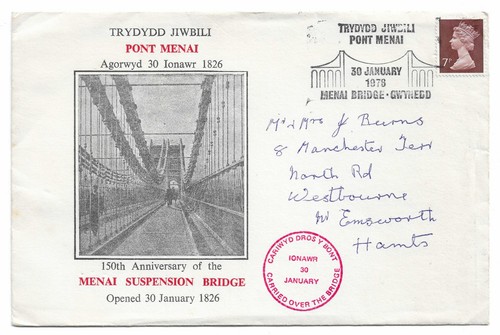 TRYDYDD JIWBILI
PONT MENAI
Agorwyd 30 Ionawr 1826
150th Anniversary of the
MENAI SUSPENSION BRIDGE
Opened 30 January 1826
TRYDYDD JIWBILI
PONT MENAI
30 JANUARY
1976
MENAI BRIDGE · GWYNEDD
7P
Mr & Mrs J Burns
8 Manchester Terr
North Rd
Westbourne
Nr Emsworth
Hants
CARIWYD DROS Y BONT
IONAWR
30
JANUARY
CARRIED OVER THE BRIDGE